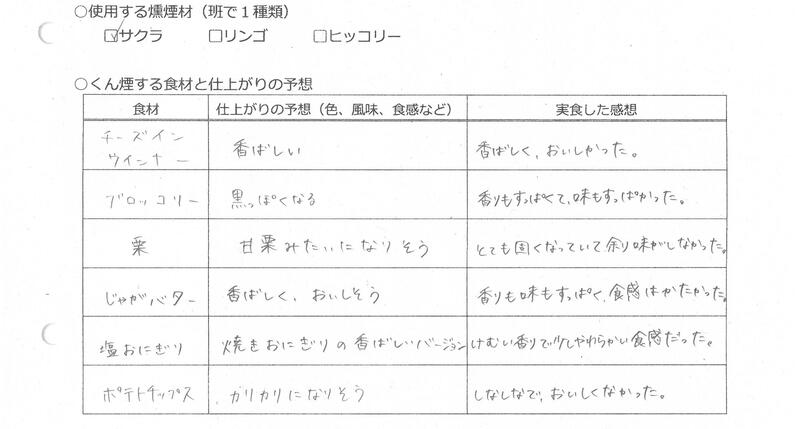 ○使用する燻煙材（班で１種類）
☑サクラ □リンゴ □ヒッコリー
○くん煙する食材と仕上がりの予想
食材 仕上がりの予想（色、風味、食感など） 実食した感想
チーズイン
ウインナー 香ばしい 香ばしく、おいしかった。
ブロッコリー 黒っぽくなる 香りもすっぱくて、味もすっぱかった。
栗 甘栗みたいになりそう とても固くなっていて余り味がしなかった。
じゃがバター 香ばしく、おいしそう 香りも味もすっぱく、食感はかたかった。
塩おにぎり 焼きおにぎりの香ばしいバージョン けむい香りで少しやわらかい食感だった。
ポテトチップス カリカリになりそう しなしなで、おいしくなかった。